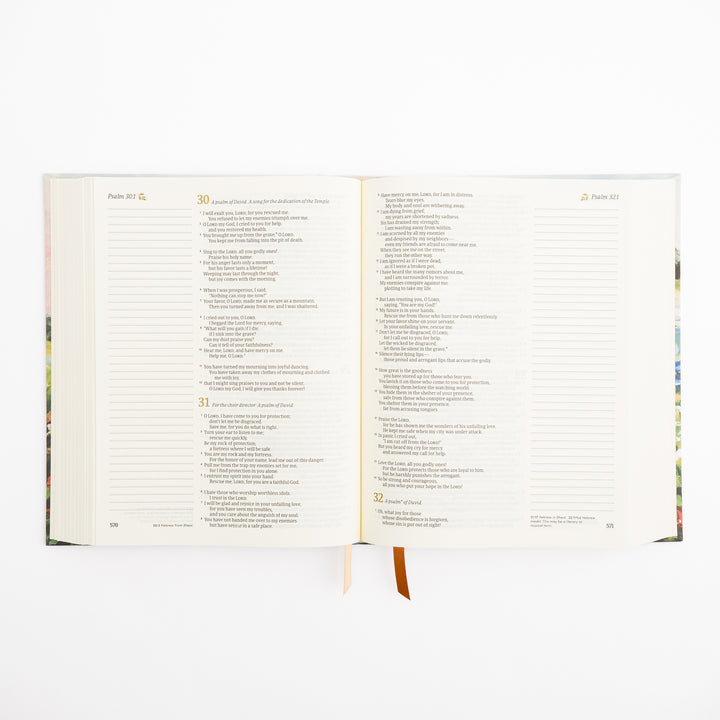 Psalm 30:1
30 A psalm of David. A song for the dedication of the Temple.
1 I will exalt you, LORD, for you rescued me.
You refused to let my enemies triumph over me.
2 O LORD my God, I cried to you for help,
and you restored my health.
3 You brought me up from the grave,* O LORD.
You kept me from falling into the pit of death.
4 Sing to the LORD, all you godly ones!
Praise his holy name.
5 For his anger lasts only a moment,
but his favor lasts a lifetime!
Weeping may last through the night,
but joy comes with the morning.
6 When I was prosperous, I said,
"Nothing can stop me now!"
7 Your favor, O LORD, made me as secure as a mountain.
Then you turned away from me, and I was shattered.
8 I cried out to you, O LORD.
I begged the Lord for mercy, saying,
9 "What will you gain if I die,
if I sink into the grave?
Can my dust praise you?
Can it tell of your faithfulness?
10 Hear me, LORD, and have mercy on me.
Help me, O LORD."
11 You have turned my mourning into joyful dancing.
You have taken away my clothes of mourning and clothed
me with joy,
12 that I might sing praises to you and not be silent.
O LORD my God, I will give you thanks forever!
31 For the choir director: A psalm of David.
1 O LORD, I have come to you for protection;
don't let me be disgraced.
Save me, for you do what is right.
2 Turn your ear to listen to me;
rescue me quickly.
Be my rock of protection,
a fortress where I will be safe.
3 You are my rock and my fortress.
For the honor of your name, lead me out of this danger.
4 Pull me from the trap my enemies set for me,
for I find protection in you alone.
5 I entrust my spirit into your hand.
Rescue me, LORD, for you are a faithful God.
6 I hate those who worship worthless idols.
I trust in the LORD.
7 I will be glad and rejoice in your unfailing love,
for you have seen my troubles,
and you care about the anguish of my soul.
8 You have not handed me over to my enemies
but have set me in a safe place.
570
30:3 Hebrew from Sheol.
9 Have mercy on me, LORD, for I am in distress.
Tears blur my eyes.
My body and soul are withering away.
10 I am dying from grief;
my years are shortened by sadness.
Sin has drained my strength;
I am wasting away from within.
11 I am scorned by all my enemies
and despised by my neighbors—
even my friends are afraid to come near me.
When they see me on the street,
they run the other way.
12 I am ignored as if I were dead,
as if I were a broken pot.
13 I have heard the many rumors about me,
and I am surrounded by terror.
My enemies conspire against me,
plotting to take my life.
14 But I am trusting you, O LORD,
saying, "You are my God!"
15 My future is in your hands.
Rescue me from those who hunt me down relentlessly.
16 Let your favor shine on your servant.
In your unfailing love, rescue me.
17 Don't let me be disgraced, O LORD,
for I call out to you for help.
Let the wicked be disgraced;
let them lie silent in the grave.*
18 Silence their lying lips—
those proud and arrogant lips that accuse the godly.
19 How great is the goodness
you have stored up for those who fear you.
You lavish it on those who come to you for protection,
blessing them before the watching world.
20 You hide them in the shelter of your presence,
safe from those who conspire against them.
You shelter them in your presence,
far from accusing tongues.
21 Praise the LORD,
for he has shown me the wonders of his unfailing love.
He kept me safe when my city was under attack.
22 In panic I cried out,
"I am cut off from the LORD!"
But you heard my cry for mercy
and answered my call for help.
23 Love the LORD, all you godly ones!
For the LORD protects those who are loyal to him,
but he harshly punishes the arrogant.
24 So be strong and courageous,
all you who put your hope in the LORD!
32 A psalm* of David.
1 Oh, what joy for those
whose disobedience is forgiven,
whose sin is put out of sight!
Psalm 32:1
31:17 Hebrew in Sheol. 32:TITLE Hebrew
maskil. This may be a literary or
musical term.
571